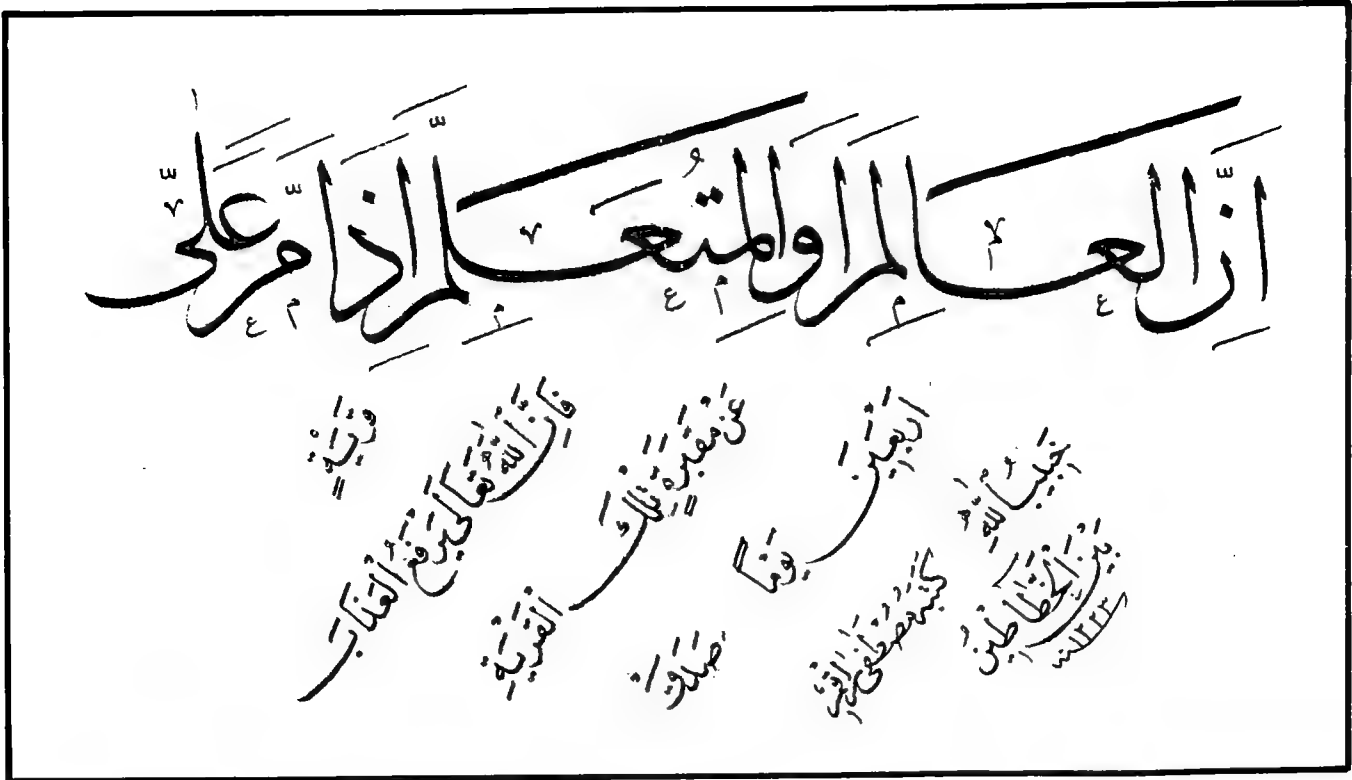 اِنَّ الْعَالِمَ اَوِ الْمُتَعَلِّمَ اِذَا مَرَّ عَلٰى
قَرْيَةٍ
فَاِنَّ اللّٰهَ تَعَالٰى يَرْفَعُ الْعَذَابَ
عَنْ مَقْبَرَةِ تِلْكَ
الْقَرْيَةِ
اَرْبَعِينَ
يَوْمًا
صَدَقَ
حَبِيبُ اللّٰهِ
كَتَبَهُ مُصْطَفٰى
بَيْنَ الْخَطَّاطِينَ
سنة ١٢٢٣